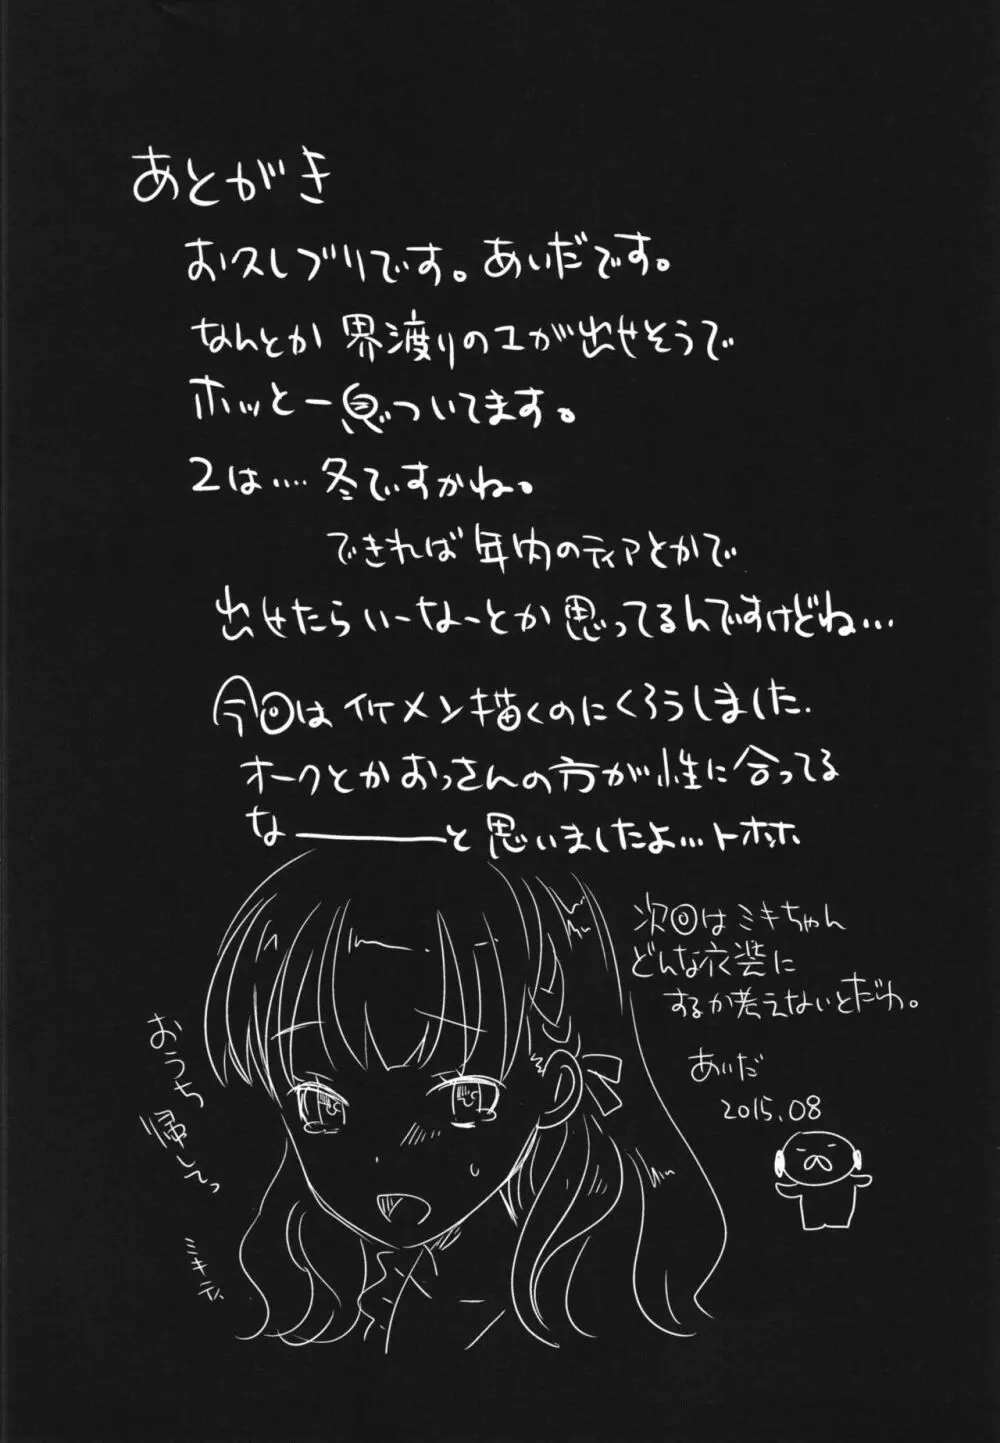 あとがき
お久しブリです。あいだです。
なんとか 界渡りの1が出せそうで
ホッと一息ついてます。
2は‥‥冬ですかね。
できれば年内のティアとかで
出せたらいーなーとか思ってるんですけどね…
今回はイケメン描くのにくろうしました.
オークとかおっさんの方が性に合ってる
な――――と思いましたよ…トホホ
次回はミキちゃん
どんな衣装に
するか考えないとだわ。
あいだ
2015.08
おうち
帰してっ
ミキティ